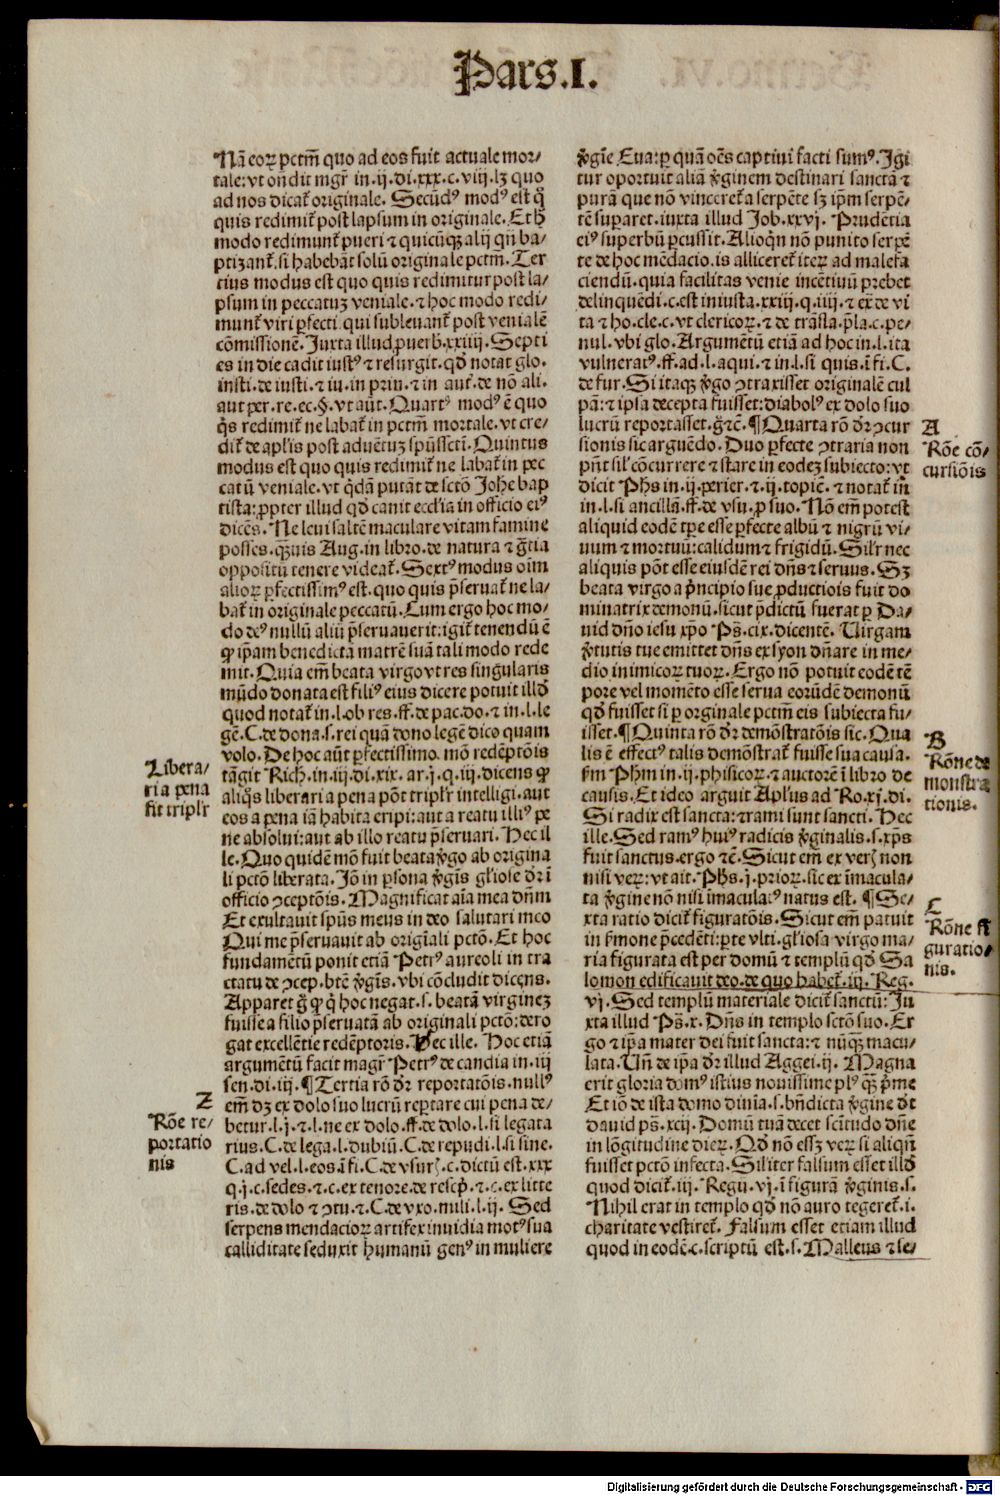 Pars.I.
Nā eoꝝ pctm̄ quo ad eos fuit actuale mor⸗
tale: vt ondit mgr̄ in.ij.di.xxx.c.viij.lꝫ quo
ad nos dicat̄ originale. Secūdꝰ modꝰ est q̄
quis redimit̄ post lapsum in originale. Et h̄
modo redimunt̄ pueri ⁊ quicūqꝫ alij qn̄ ba⸗
ptizant̄. si habebāt solū originale pctm̄. Ter
tius modus est quo quis redimitur post la⸗
psum in peccatuꝫ veniale. ⁊ hoc modo redi⸗
munt̄ viri ꝑfecti. qui subleuant̄ post venialē
cōmissionē. Iuxta illud ꝓuerb̄.xxiiij. Septi
es in die cadit iustꝰ ⁊ resurgit. qd̄ notat glo.
insti. de iusti. ⁊ iu. in prin. ⁊ in aut̄. de nō ali.
aut per. re. ec. §. vt aūt. Quartꝰ modꝰ ē quo
q̇s redimit̄ ne labat̄ in pctm̄ mortale. vt cre⸗
dit̄ de apl'is post aduētuꝫ spūssctī. Quintus
modus est quo quis redimit̄ ne labat̄ in pec
catū veniale. vt q̇dā putāt de sctō Johē bap
tista: ꝓpter illud qd̄ canit ecclīa in officio eiꝰ
dicēs. Ne leui saltē maculare vitam famine
posses. qꝫuis Aug. in libro. de natura ⁊ gr̄tia
oppositū tenere videat̄. Sextꝰ modus oīm
alioꝝ ꝑfectissimꝰ est. quo quis p̄seruat̄ ne la⸗
bat̄ in originale peccatū. Cum ergo hoc mo⸗
do deꝰ nullū aliū p̄seruauerit: igit̄ tenendū ē
ꝙ ip̄am benedictā matrē suā tali modo rede
mit. Quia em̄ beata virgo vt res singularis
mūdo donata est filiꝰ eius dicere potuit illd̄
quod notat̄ in.l. ob res. ff. de pac. do. ⁊ in.l. le
gē. C. de dona. s. rei quā dono legē dico quam
volo. De hoc aūt ꝑfectissimo mō redēptōis
tāgit Rich. in.iij.di.xix.ar.j.q.iij. dicens ꝙ
aliq̇s liberari a pena pōt tripl'r intelligi. aut
eos a pena iā habita eripi: aut a reatu illiꝰ pe
ne absolui: aut ab illo reatu p̄seruari. Hec il
le. Quo quidē mō fuit beata v̄go ab origina
li pctō liberata. Iō in ꝑsona v̄gīs gl'iose dr̄ ī
officio ꝯceptōis. Magnificat aīa mea dn̄m
Et exultauit spūs meus in deo salutari meo
Qui me p̄seruauit ab origīali pctō. Et hoc
fundamētū ponit etiā Petrꝰ aureoli in tra
ctatu de ꝯcep. btē v̄gīs. vbi cōcludit dicens.
Apparet g̊ ꝙ q̇ hoc negat. s. beatā virgineꝫ
fuisse a filio p̄seruatā ab originali pctō: dero
gat excellētie redēptoris. Hec ille. Hoc etiā
argumētū facit magr̄ Petrꝰ de candia in.iij
sen.di.iij. ¶ Tertia rō dr̄ reportatōis. nullꝰ
em̄ dꝫ ex dolo suo lucrū reꝑtare cui pena de⸗
betur.l.j.⁊.l. ne ex dolo. ff. de dolo.l. si legata
rius. C. de lega.l. dubiū. C. de repudi.l. si sine.
C. ad vel.l. eos ī fi. C. de vsur̄.c. dictū est.xxx
q.j.c. sedes.⁊.c. ex tenore. de rescp̄.⁊.c. ex litte
ris. de dolo ⁊ ꝯtu.⁊. C. de vxo. mili.l.ij. Sed
serpens mendacioꝝ artifex inuidia motꝰ sua
calliditate seduxit humanū genꝰ in muliere
Libera⸗
ri a pena
fit tripl'r
Z
Rōe re⸗
portatio
nis
v̄gīe Eua: ꝑ quā oēs captiui facti sumꝰ. Igi
tur oportuit aliā v̄ginem destinari sanctā ⁊
purā que nō vinceret̄ a serpēte sꝫ ip̄m serpē⸗
tē suꝑaret. iuxta illud Job.xxvj. Prudētia
eiꝰ superbū ꝑcussit. Alioqn̄ nō punito serpē
te de hoc mēdacio. is alliceret̄ iteꝝ ad malefa
ciendū. quia facilitas venie incētiuū prebet
delinquēdi.c. est iniusta.xxiij.q.iiij.⁊ ex̄ de vi
ta ⁊ ho. cle.c. vt clericoꝝ.⁊ de trāsla. p̄la.c. pe⸗
nul. vbi glo. Argumētū etiā ad hoc in.l. ita
vulneratꝰ. ff. ad.l. aqui.⁊ in.l. si quis. ī fi. C.
de fur. Si itaqꝫ v̄go ꝯtraxisset originalē cul
pā: ⁊ ipsa decepta fuisset: diabolꝰ ex dolo suo
lucrū reportasset. gr̄ ⁊c̄. ¶ Quarta rō dr̄ ꝯcur
sionis sic arguēdo. Duo ꝑfecte ꝯtraria non
pn̄t sil' cōcurrere ⁊ stare in eodeꝫ subiecto: vt
dicit Ph̄s in.ij. perier.⁊.ij. topic̄.⁊ notat̄ in
in.l. si ancilla. ff. de vsu. ꝓ suo. Nō em̄ potest
aliquid eodē tp̄e esse ꝑfecte albū ⁊ nigrū vi⸗
uum ⁊ mortuū: calidum ⁊ frigidū. Sil'r nec
aliquis pōt esse eiusdē rei dn̄s ⁊ seruus. Sꝫ
beata virgo a p̄ncipio sue ꝓductiois fuit do
minatrix demonū. sicut p̄dictū fuerat ꝑ Da⸗
uid dn̄o iesu xp̄o Ps̄.cix. dicentē. Uirgam
v̄tutis tue emittet dn̄s ex syon dn̄are in me⸗
dio inimicoꝝ tuoꝝ. Ergo nō potuit eodē tē
pore vel momēto esse serua eorūdē demonū
qd̄ fuisset si ꝑ orginale pctm̄ eis subiecta fu⸗
isset. ¶ Quinta rō dr̄ demōstratōis sic. Qua
lis ē effectꝰ talis demōstrat̄ fuisse sua causa.
s̄m Ph̄m in.ij. phisicoꝝ.⁊ auctorē ī libro de
causis. Et ideo arguit Apl'us ad Ro.xj.di.
Si radix est sancta: ⁊ rami sunt sancti. Hec
ille. Sed ramꝰ huiꝰ radicis v̄ginalis. s. xp̄s
fuit sanctus. ergo ⁊c̄. Sicut em̄ ex ver̄ non
nisi veꝝ: vt ait. Ph̄s.j. prioꝝ. sic ex īmacula⸗
ta v̄gine nō nisi imaculatꝰ natus est. ¶ Se⸗
xta ratio dicit̄ figuratōis. Sicut em̄ patuit
in s̄mone p̄cedēti: ꝑte vlti. gl'iosa virgo ma⸗
ria figurata est per domū ⁊ templū qd̄ Sa
lomon edificauit deo. de quo habet̄.iij. Reg.
vj. Sed templū materiale dicit̄ sanctū: Iu
xta illud Ps̄.x. Dn̄s in templo sctō suo. Er
go ⁊ ip̄a mater dei fuit sancta: ⁊ nūqꝫ macu⸗
lata. Un̄ de ip̄a dr̄ illud Aggei.ij. Magna
erit gloria domꝰ istius nouissime plꝰ qꝫ p̄me
Et iō de ista domo diuia. s. bn̄dicta v̄gine dt̄
dauid ps̄.xcij. Domū tuā decet sctitudo dn̄e
in lōgitudine dieꝝ. Qd̄ nō esseꝫ veꝝ si aliqn̄
fuisset pctō infecta. Sil'iter falsum esset illd̄
quod dicit̄.iij. Regū.vj. ī figurā v̄ginis. s.
Nihil erat in templo qd̄ nō auro tegeret̄.i.
charitate vestiret̄. Falsum esset etiam illud
quod in eodē.c. scriptū est. s. Malleus ⁊ se⸗
A
Rōe cō⸗
cursiōis
B
Rōne de
monstra
tionis.
C
Rōne fi
guratio⸗
nis.
Digitalisierung gefördert durch die Deutsche Forschungsgemeinschaft - DFG